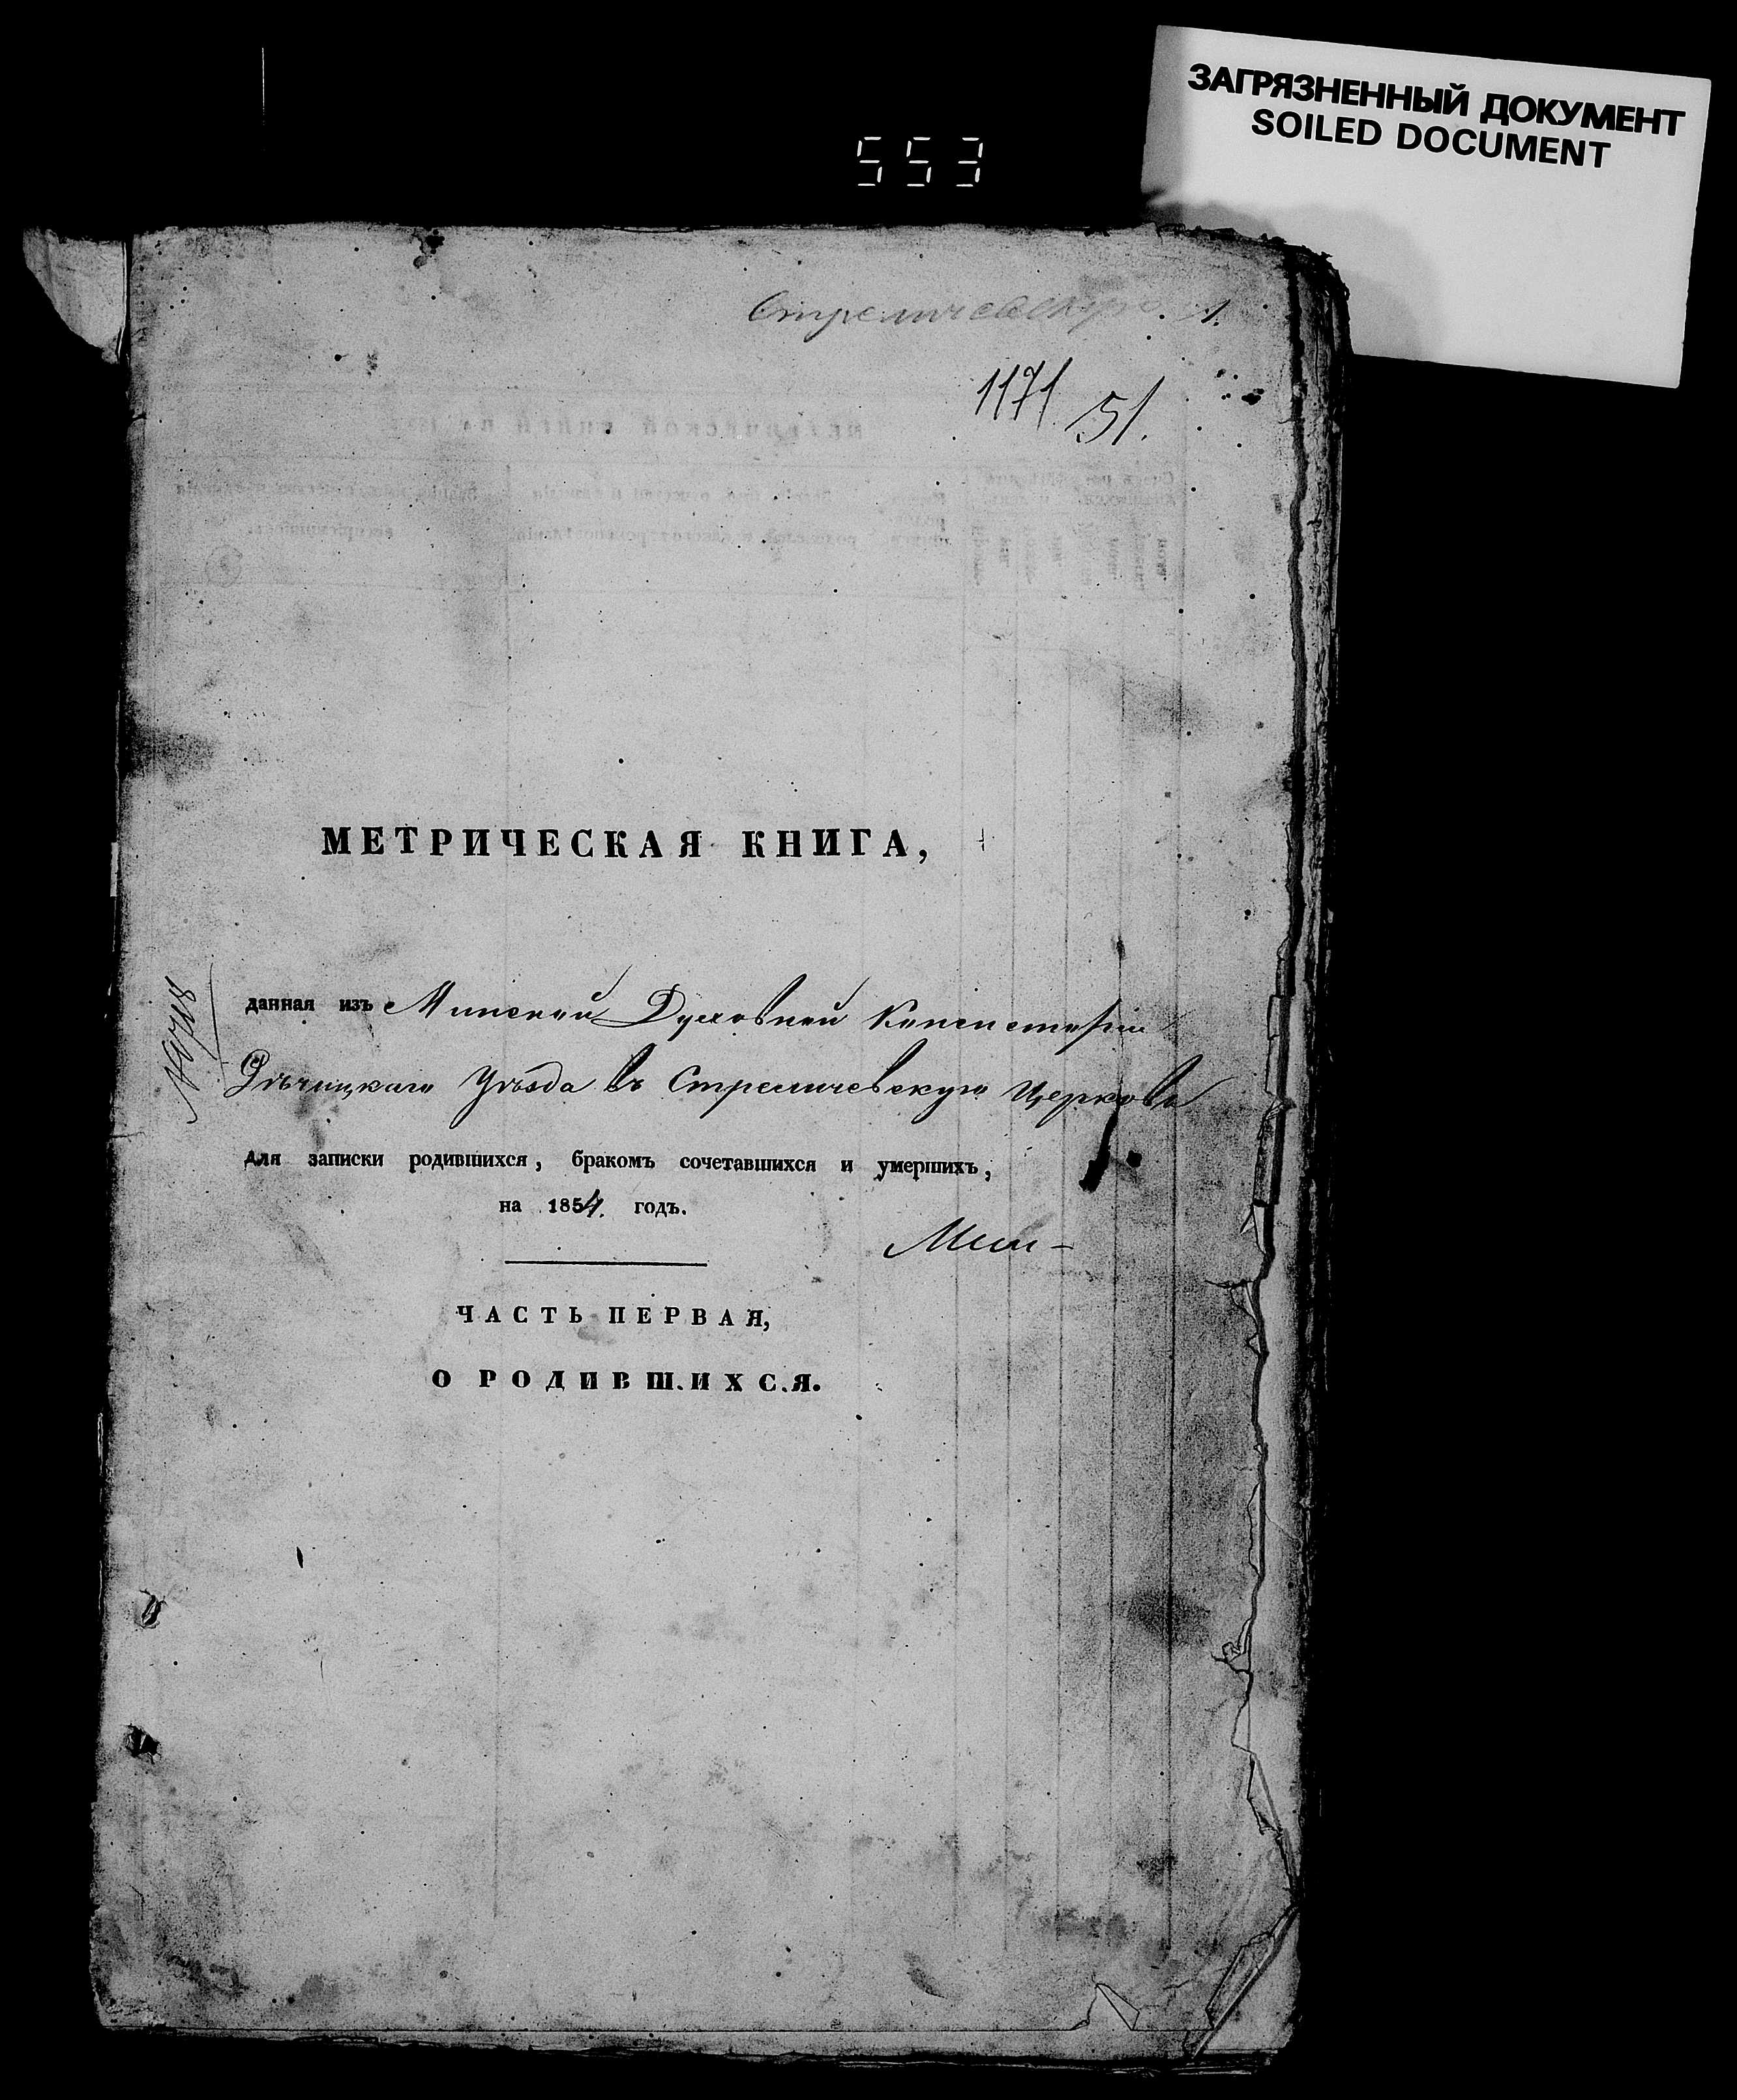 ЗАГРЯЗНЕННЫЙ ДОКУМЕНТ
SOILED DOCUMENT
553
Стреличевскую. 1.
1171. 51.
МЕТРИЧЕСКАЯ КНИГА,
данная изъ Минской Духовной Консисторіи
Рѣчицкаго Уѣзда въ Стреличевскую Церковь
для записки родившихся, бракомъ сочетавшихся и умершихъ,
на 1854. годъ.
ЧАСТЬ ПЕРВАЯ,
О РОДИВШИХСЯ.